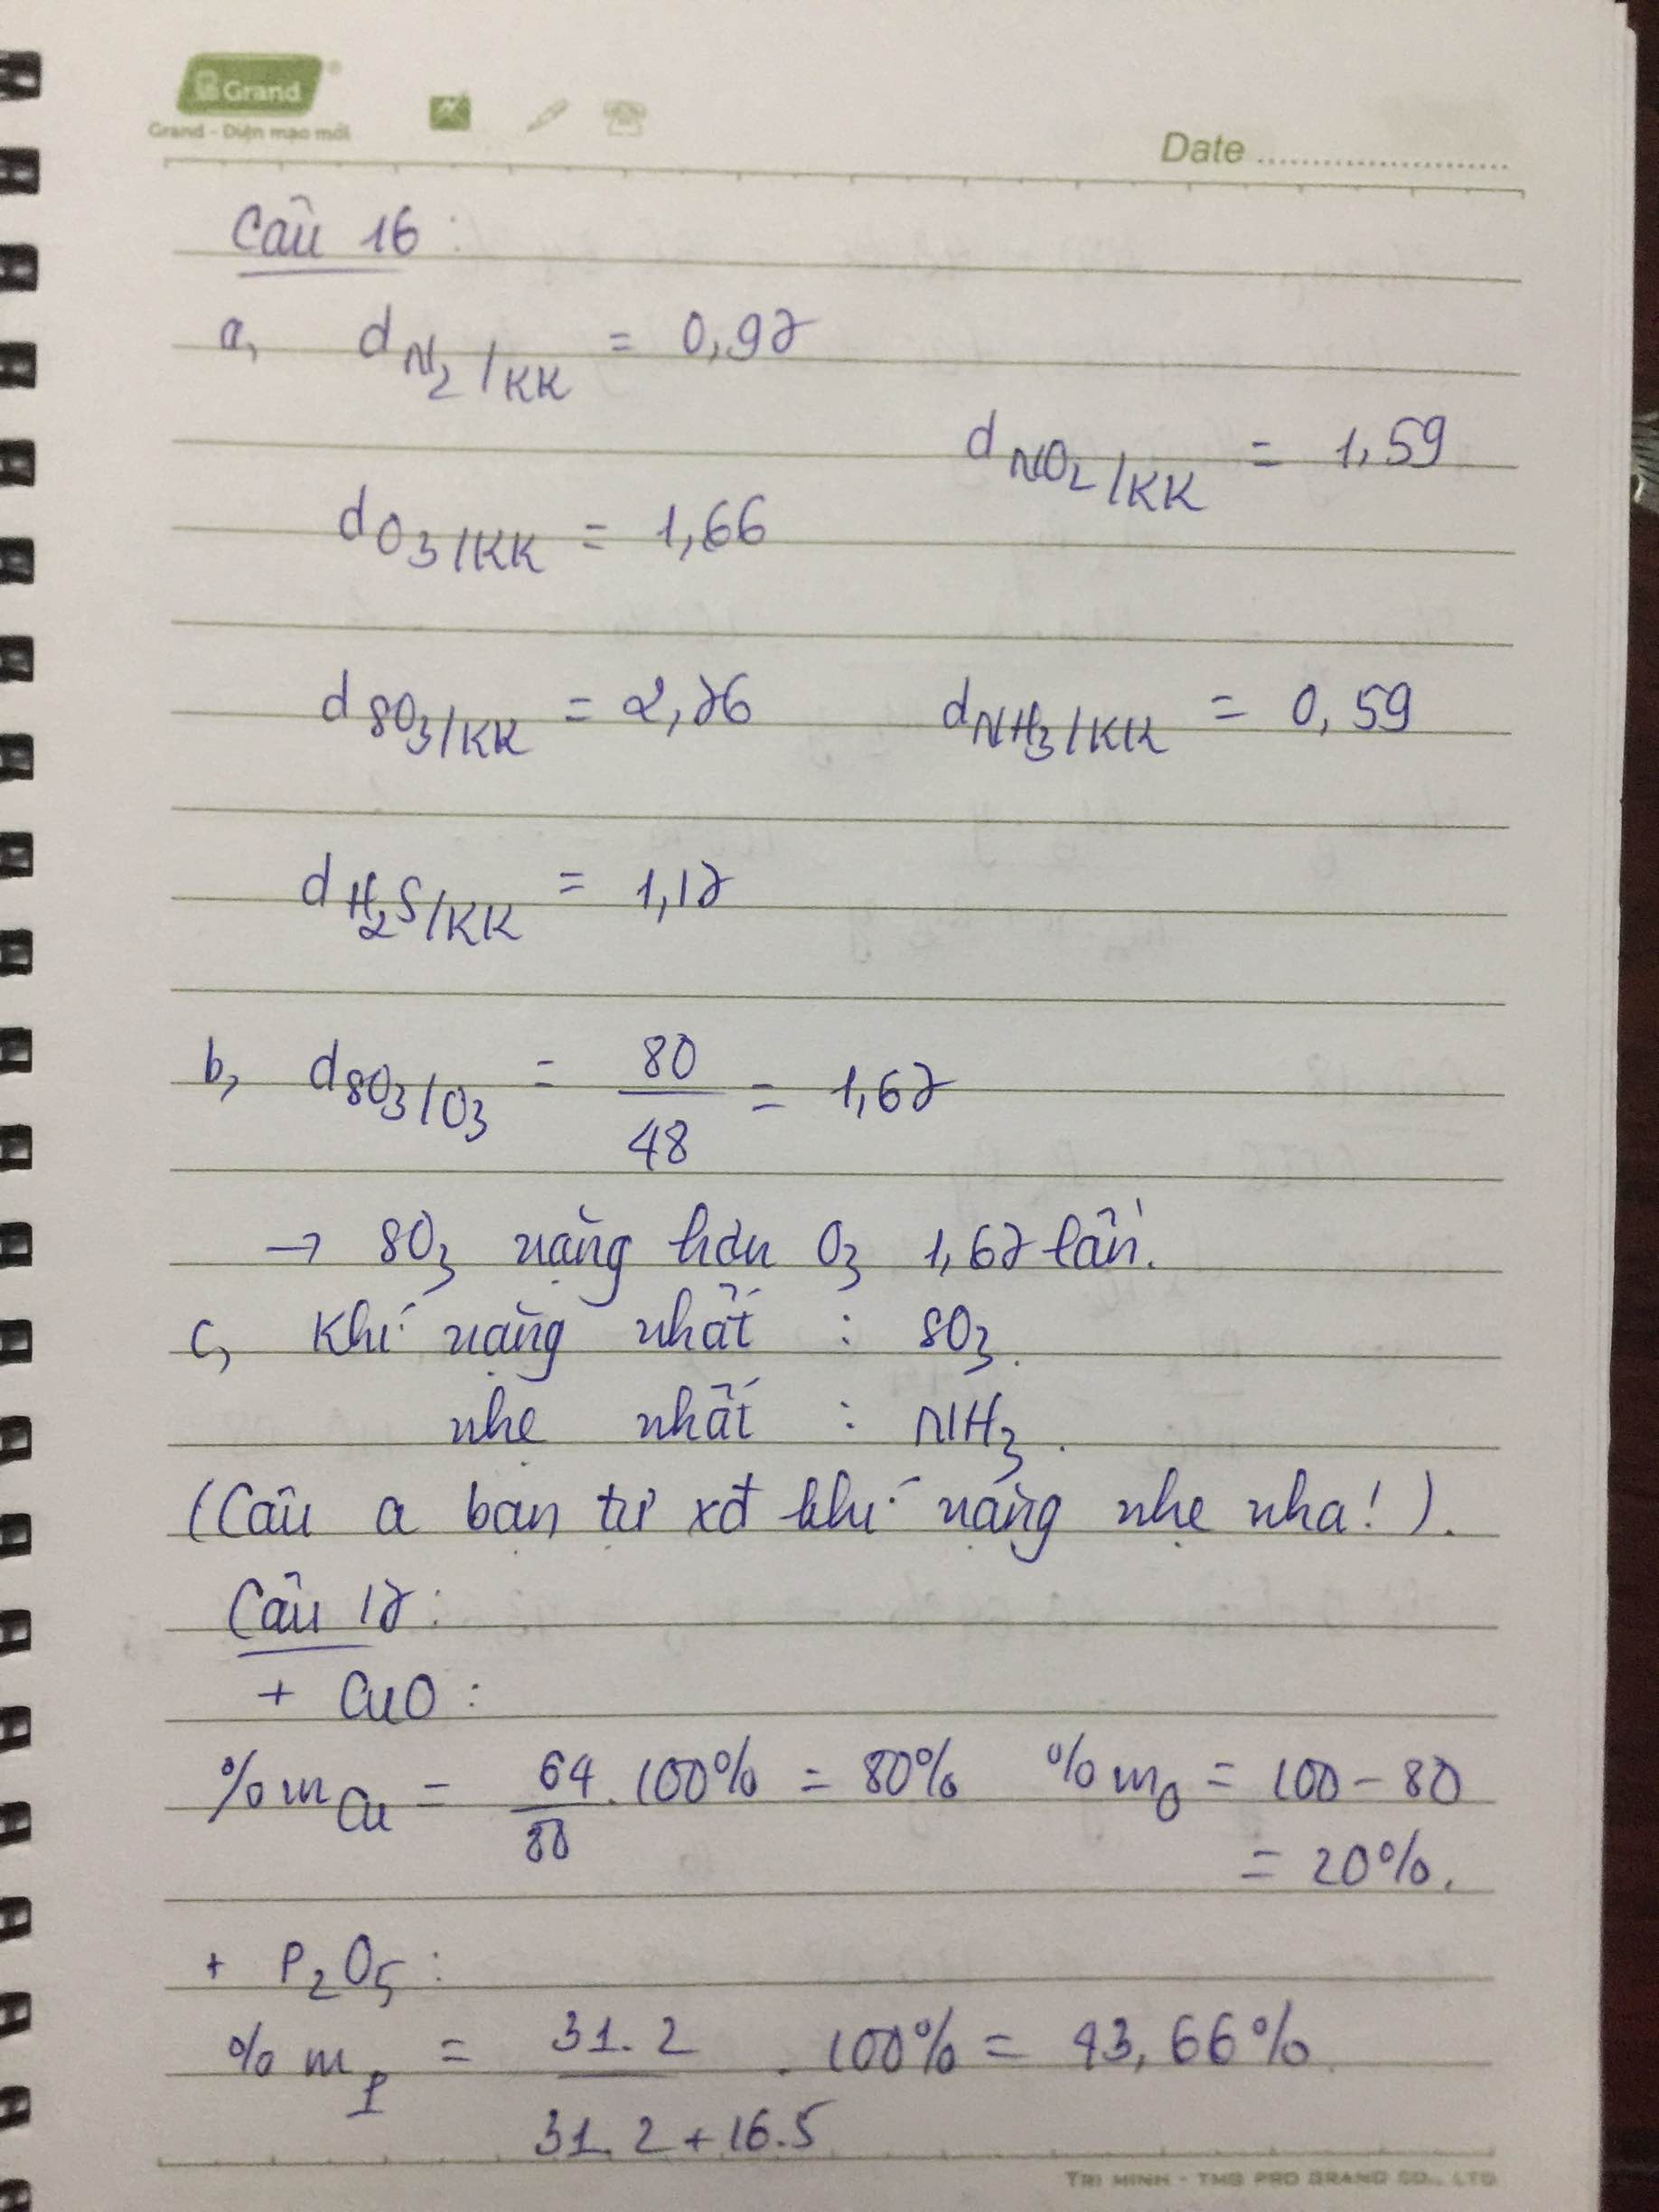 Grand
Grand - Diện mạo mới
Date
Câu 16 :
a, d N₂/KK = 0,97
d NO₂/KK = 1,59
d O₃/KK = 1,66
d SO₃/KK = 2,76 d NH₃/KK = 0,59
d H₂S/KK = 1,17
b, d SO₃/O₃ = 80/48 = 1,67
→ SO₃ nặng hơn O₃ 1,67 lần.
c, Khí nặng nhất : SO₃.
nhẹ nhất : NH₃.
(Câu a bạn tự xđ khí nặng nhẹ nha!).
Câu 17 :
+ CuO :
%m Cu = 64/80 . 100% = 80% %m O = 100 - 80
= 20%.
+ P₂O₅ :
%m P = 31.2/31.2+16.5 . 100% = 43,66%.
TRI MINH - TMG PRO GRAND CO., LTD